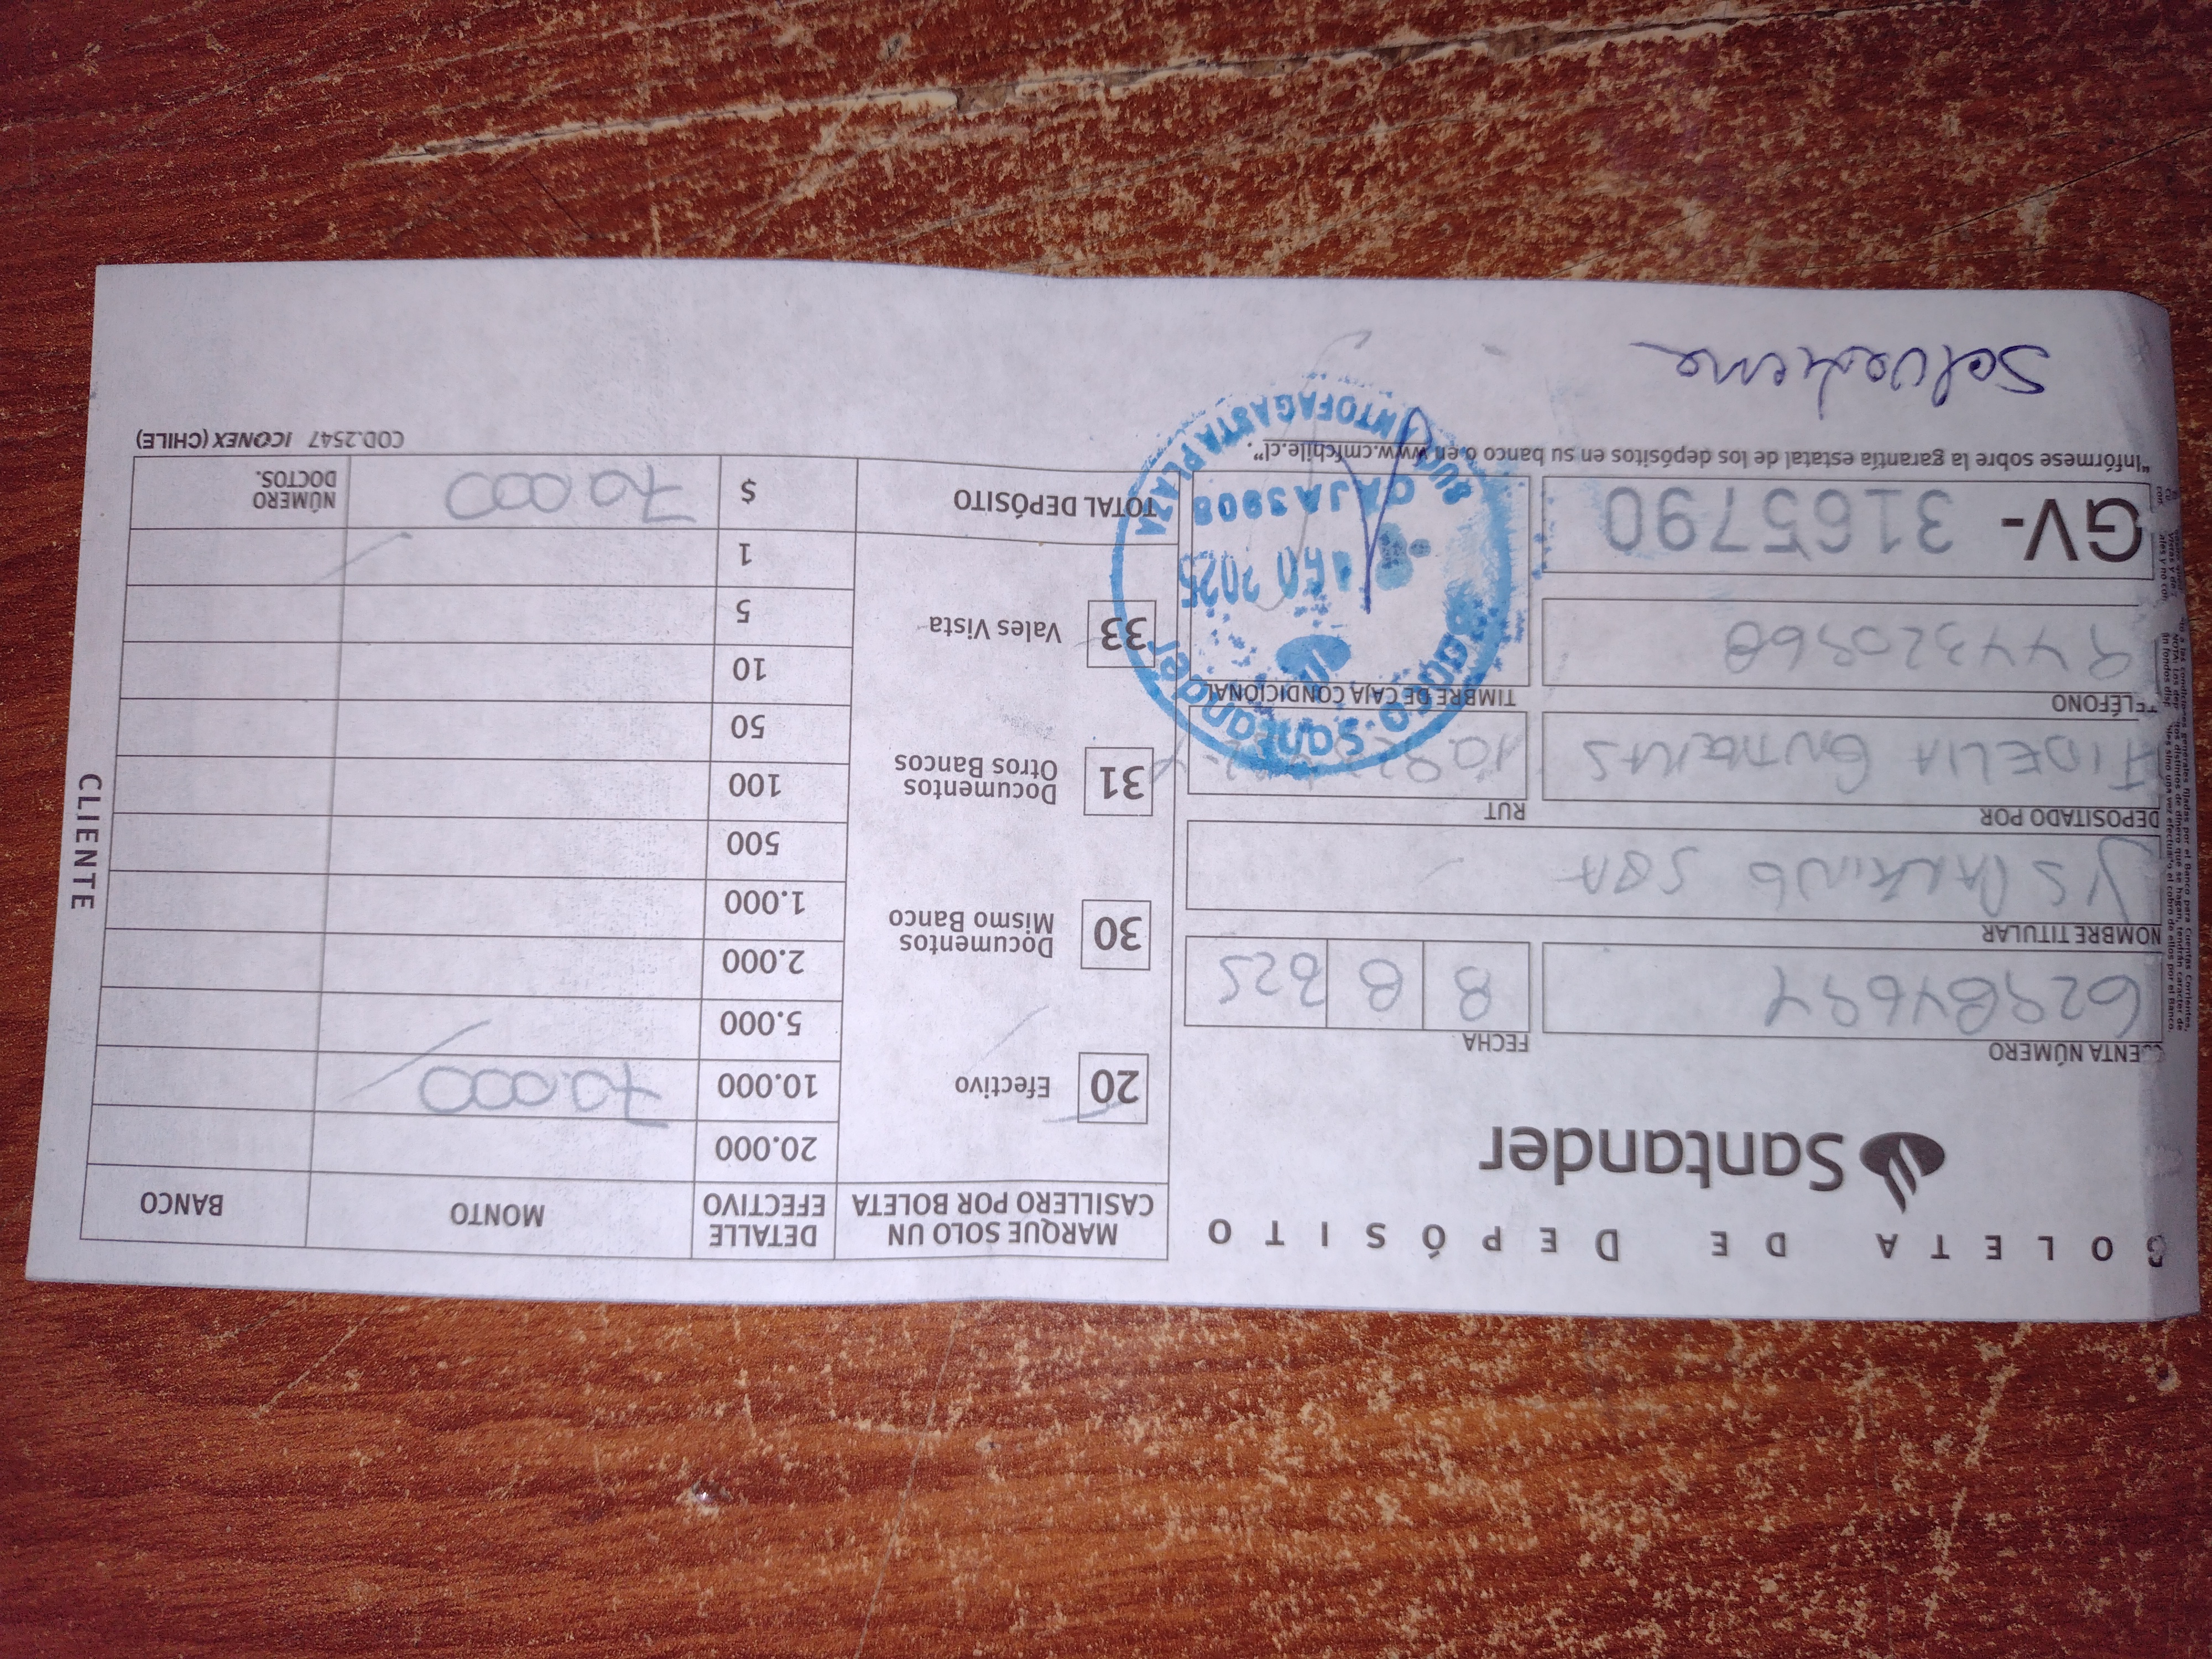 BOLETA DE DEPÓSITO
Santander
CUENTA NÚMERO
62984694
FECHA
8 8 2025
NOMBRE TITULAR
YS PARKING SPA
DEPOSITADO POR
FIDELIA
RUT
TELÉFONO
944320968
TIMBRE DE CAJA CONDICIONAL
GV- 3165790
"Infórmese sobre la garantía estatal de los depósitos en su banco o en www.cmfchile.cl".
MARQUE SOLO UN CASILLERO POR BOLETA
20 Efectivo
30 Documentos Mismo Banco
31 Documentos Otros Bancos
33 Vales Vista
DETALLE EFECTIVO MONTO BANCO
20.000
10.000 70.000
5.000
2.000
1.000
500
100
50
10
5
1
TOTAL DEPÓSITO $ 70.000 NÚMERO DOCTOS.
COD.2547 ICONEX (CHILE)
CLIENTE
Banco Santander
2025
CAJA 3908
SUC. ANTOFAGASTA PLAZA